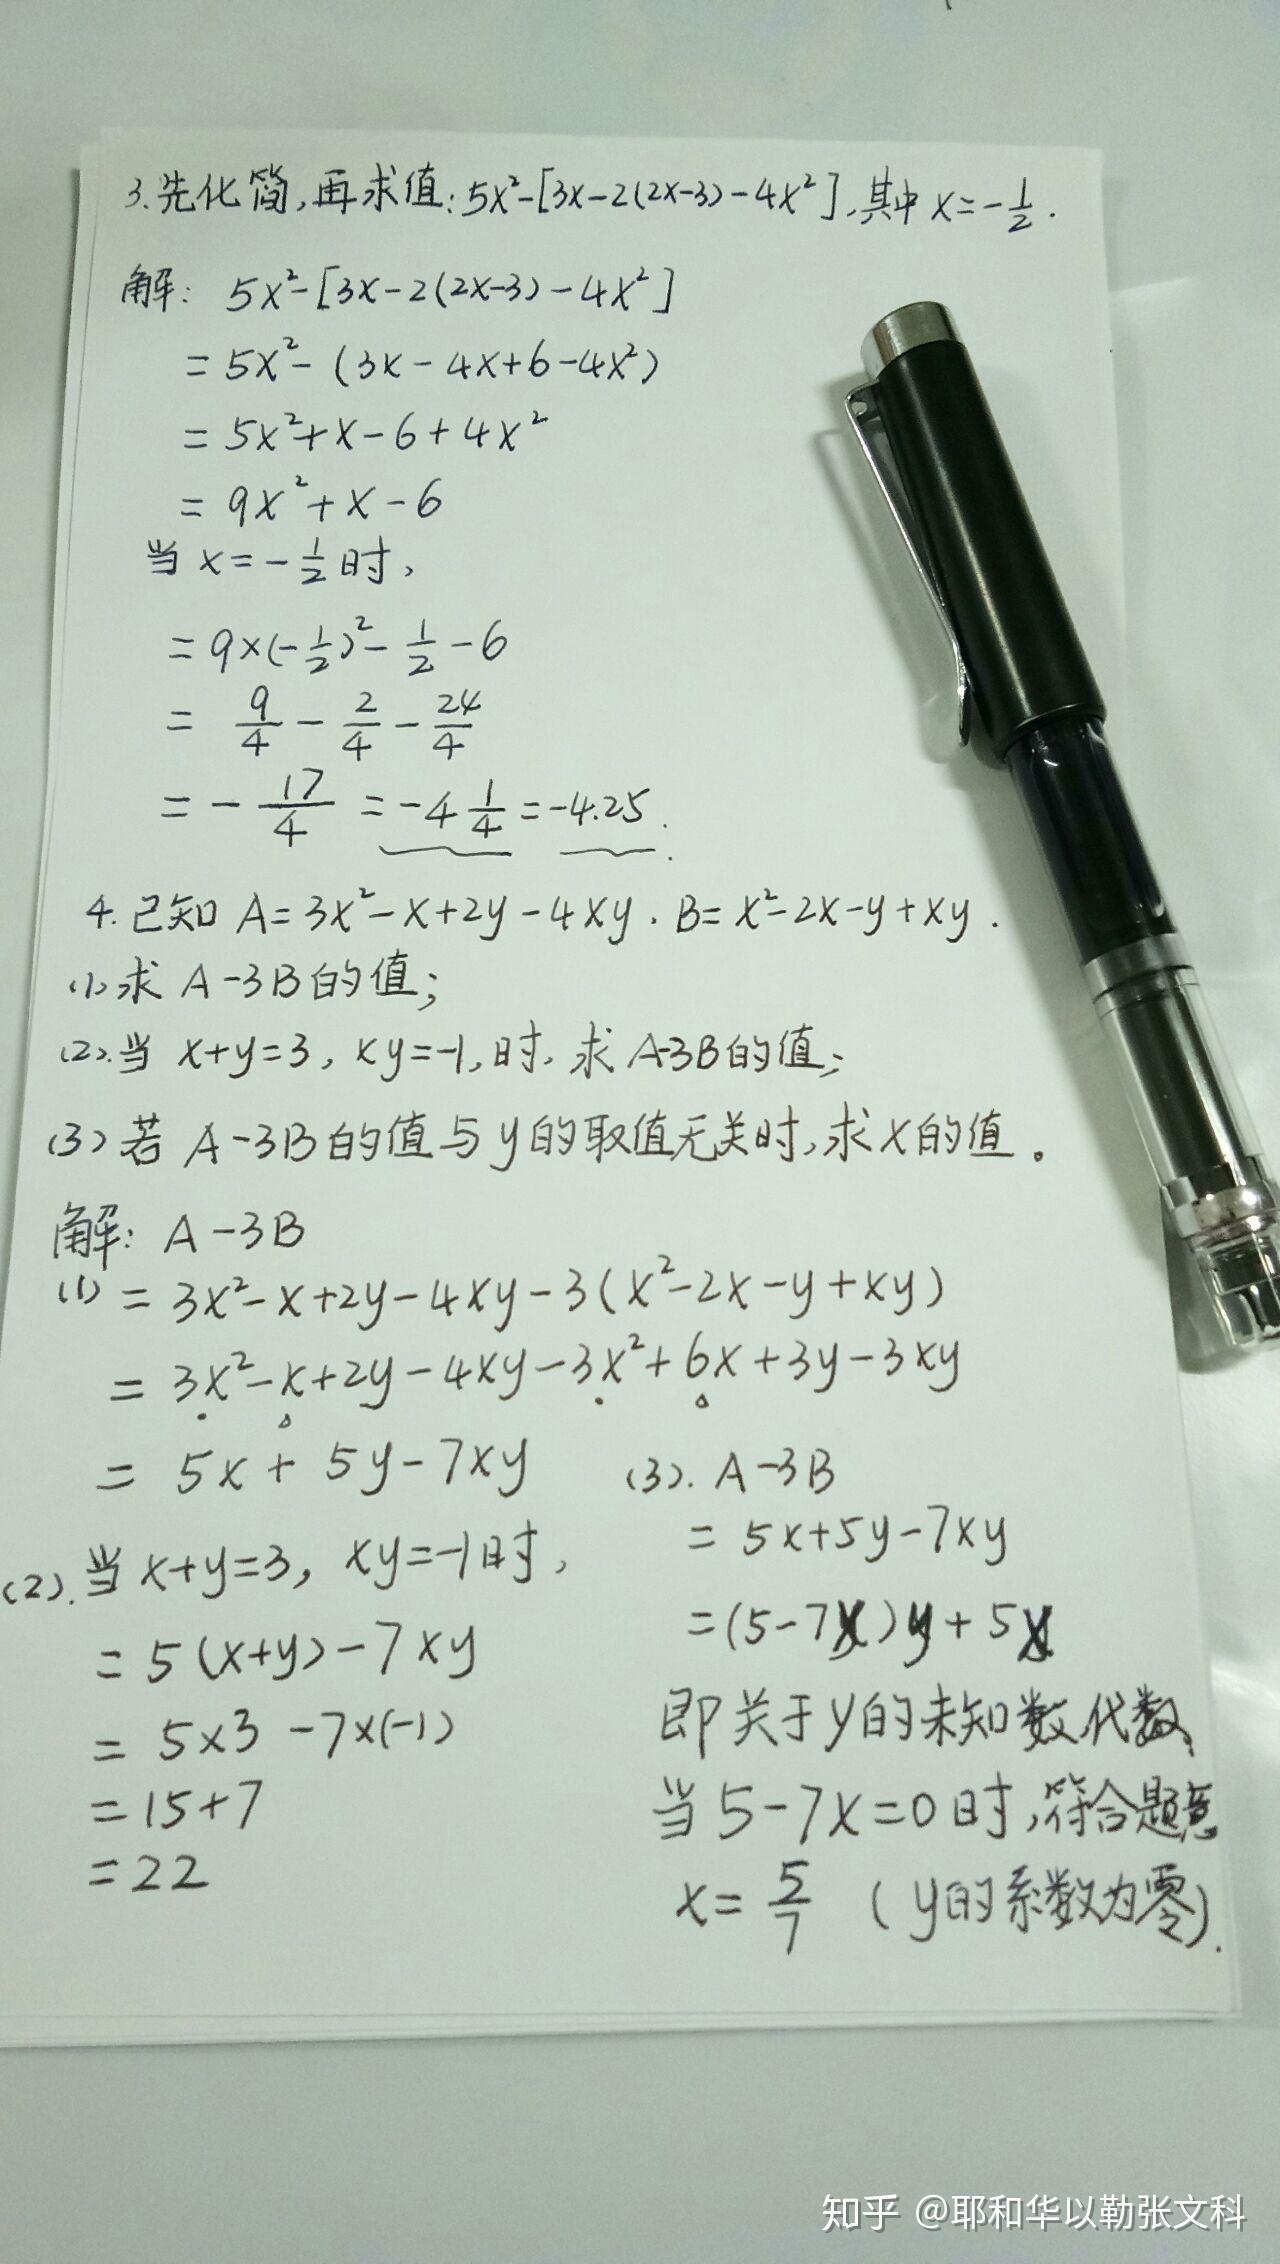 3.先化简,再求值:5x²-[3x-2(2x-3)-4x²],其中x=-1/2.
解: 5x²-[3x-2(2x-3)-4x²]
=5x²-(3x-4x+6-4x²)
=5x²+x-6+4x²
=9x²+x-6
当x=-1/2时,
=9×(-1/2)²-1/2-6
=9/4-2/4-24/4
=-17/4=-4 1/4=-4.25.
4.已知A=3x²-x+2y-4xy.B=x²-2x-y+xy.
(1)求A-3B的值;
(2).当x+y=3,xy=-1,时,求A-3B的值;
(3)若A-3B的值与y的取值无关时,求x的值.
解: A-3B
(1)=3x²-x+2y-4xy-3(x²-2x-y+xy)
=3x²-x+2y-4xy-3x²+6x+3y-3xy
=5x+5y-7xy
(2).当x+y=3,xy=-1时,
=5(x+y)-7xy
=5×3-7×(-1)
=15+7
=22
(3).A-3B
=5x+5y-7xy
=(5-7x)y+5x
即关于y的未知数代数,
当5-7x=0时,符合题意
x=5/7 (y的系数为零).
知乎 @耶和华以勒张文科